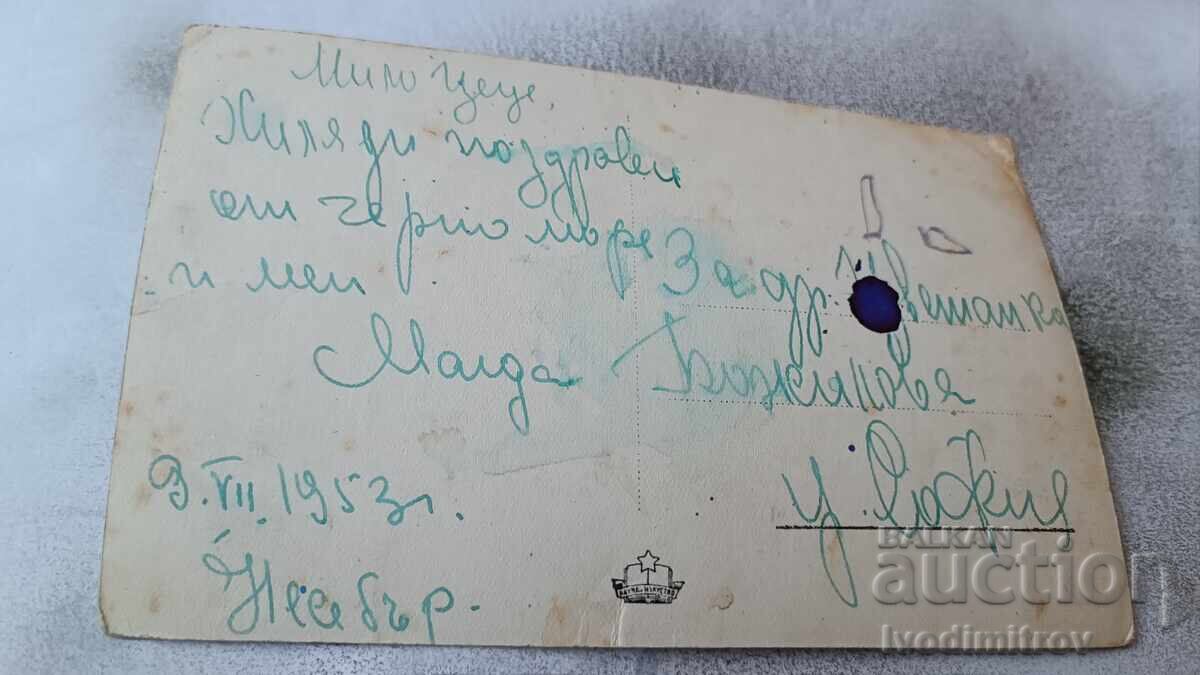 Мило Цеце,
Хиляди поздрави
от Черно море
и мен
Магда
9.VII.1953г.
Несебър.
За др. Цветанка
Божилова
София
НАУКА И ИЗКУСТВО
BALKAN
auction
Ivodimitrov